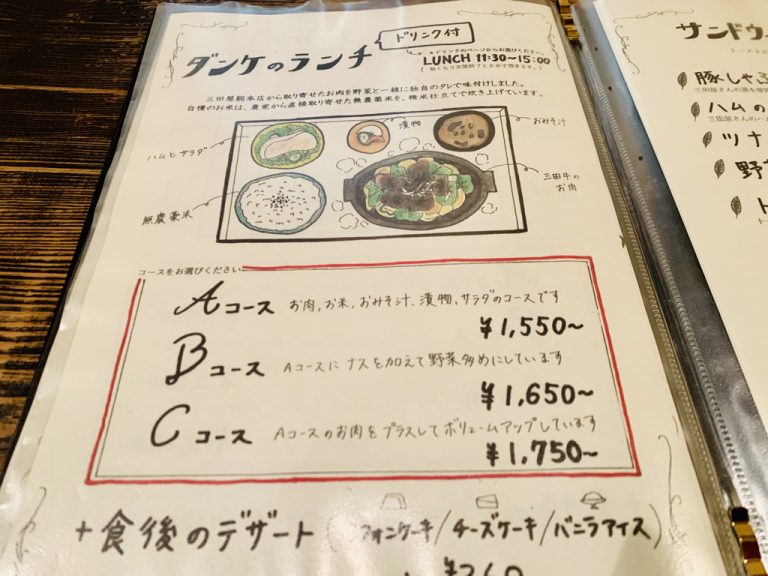 ダンケのランチ
ドリンク付
＊ドリンクのページからお選びください。
LUNCH 11:30~15:00
三田屋総本店から取り寄せたお肉を野菜と一緒に独自のタレで味付けしました。
自慢のお米は、農家から直接取り寄せた無農薬米を、精米仕立てで炊き上げています。
ハムとサラダ
漬物
おみそ汁
無農薬米
三田牛の
お肉
コースをお選びください
Aコース お肉,お米,おみそ汁,漬物,サラダのコースです
¥1,550~
Bコース Aコースにナスを加えて野菜多めにしています
¥1,650~
Cコース Aコースのお肉をプラスしてボリュームアップしています
¥1,750~
+食後のデザート(フォンケーキ/チーズケーキ/バニラアイス)
サンドウ
豚しゃぶ
ハムの
ツナ
野